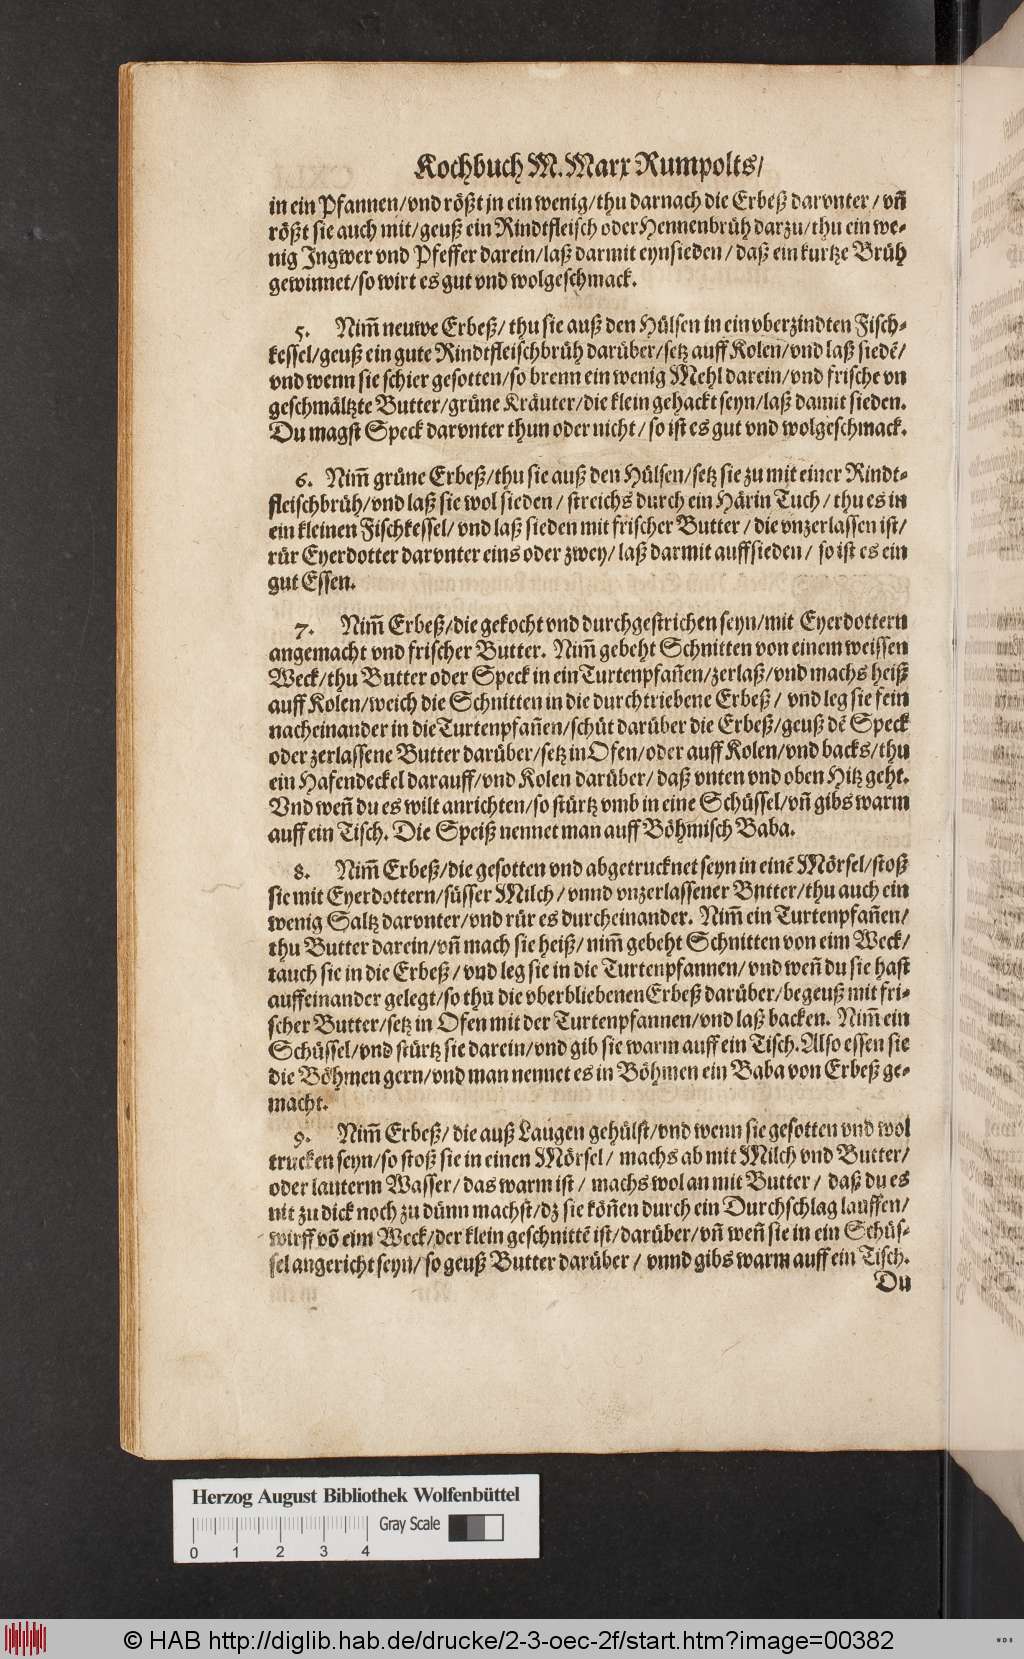 Kochbuch M. Marx Rumpolts/
in ein Pfannen/vnd rößt jn ein wenig/thu darnach die Erbeß darvnter/vn̄
rößt sie auch mit/geuß ein Rindtfleisch oder Hennenbrüh darzu/thu ein we-
nig Ingwer vnd Pfeffer darein/laß darmit eynsieden/daß ein kurtze Brüh
gewinnet/so wirt es gut vnd wolgeschmack.
5. Nim̄ neuwe Erbeß/thu sie auß den Hülsen in ein vberzindten Fisch-
kessel/geuß ein gute Rindtfleischbrüh darüber/setz auff Kolen/vnd laß siedē/
vnd wenn sie schier gesotten/so brenn ein wenig Mehl darein/vnd frische vn
geschmältzte Butter/grüne Kräuter/die klein gehackt seyn/laß damit sieden.
Du magst Speck darvnter thun oder nicht/so ist es gut vnd wolgeschmack.
6. Nim̄ grüne Erbeß/thu sie auß den Hülsen/setz sie zu mit einer Rindt-
fleischbrüh/vnd laß sie wol sieden/streichs durch ein Härin Tuch/thu es in
ein kleinen Fischkessel/vnd laß sieden mit frischer Butter/die vnzerlassen ist/
rür Eyerdotter darvnter eins oder zwey/laß darmit auffsieden/so ist es ein
gut Essen.
7. Nim̄ Erbeß/die gekocht vnd durchgestrichen seyn/mit Eyerdottern
angemacht vnd frischer Butter. Nim̄ gebeht Schnitten von einem weissen
Weck/thu Butter oder Speck in ein Turtenpfan̄en/zerlaß/vnd machs heiß
auff Kolen/weich die Schnitten in die durchtriebene Erbeß/vnd leg sie fein
nacheinander in die Turtenpfan̄en/schüt darüber die Erbeß/geuß dē Speck
oder zerlassene Butter darüber/setz in Ofen/oder auff Kolen/vnd backs/thu
ein Hafendeckel darauff/vnd Kolen darüber/daß vnten vnd oben Hitz geht.
Vnd wen̄ du es wilt anrichten/so stürtz vmb in eine Schüssel/vn̄ gibs warm
auff ein Tisch. Die Speiß nennet man auff Böhmisch Baba.
8. Nim̄ Erbeß/die gesotten vnd abgetrucknet seyn in einē Mörsel/stoß
sie mit Eyerdottern/süsser Milch/vnnd vnzerlassener Bntter/thu auch ein
wenig Saltz darvnter/vnd rür es durcheinander. Nim̄ ein Turtenpfan̄en/
thu Butter darein/vn̄ mach sie heiß/nim̄ gebeht Schnitten von eim Weck/
tauch sie in die Erbeß/vnd leg sie in die Turtenpfannen/vnd wen̄ du sie hast
auffeinander gelegt/so thu die vberbliebenen Erbeß darüber/begeuß mit fri-
scher Butter/setz in Ofen mit der Turtenpfannen/vnd laß backen. Nim̄ ein
Schüssel/vnd stürtz sie darein/vnd gib sie warm auff ein Tisch. Also essen sie
die Böhmen gern/vnd man nennet es in Böhmen ein Baba von Erbeß ge-
macht.
9. Nim̄ Erbeß/die auß Laugen gehülst/vnd wenn sie gesotten vnd wol
trucken seyn/so stoß sie in einen Mörsel/machs ab mit Milch vnd Butter/
oder lauterm Wasser/das warm ist/machs wol an mit Butter/daß du es
nit zu dick noch zu dünn machst/dz sie kön̄en durch ein Durchschlag lauffen/
wirff vō eim Weck/der klein geschnittē ist/darüber/vn̄ wen̄ sie in ein Schüs-
sel angericht seyn/so geuß Butter darüber/vnnd gibs warm auff ein Tisch.
Du
Herzog August Bibliothek Wolfenbüttel
Gray Scale
0 1 2 3 4
© HAB http://diglib.hab.de/drucke/2-3-oec-2f/start.htm?image=00382